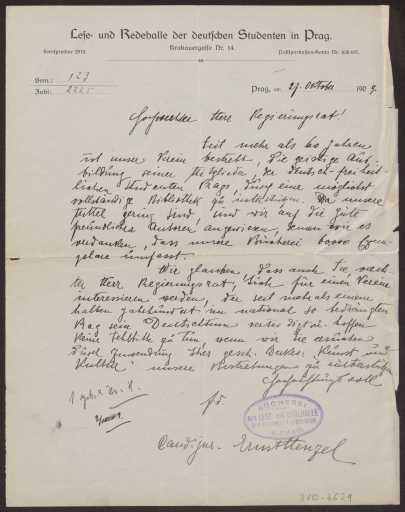 Lese- und Redehalle der deutschen Studenten in Prag.
Krakauergasse Nr. 14.
Fernsprecher 2912.
Postsparkassen-Konto Nr.
Sem.: 123
Prag, am 27. Oktober 190
Hochverehrter Herr Regierungsrat!
Seit mehr als 60 Jahren
ist unser Verein bestrebt, die geistige Aus-
bildung seiner Mitglieder, der deutsch-freiheit-
lichen Studenten Prags, durch eine möglichst
vollständige Bibliothek zu unterstützen. Da unsere
Mittel gering sind, sind wir auf die Güte
freundlicher Autoren angewiesen, denen wir es
verdanken, dass unsere Bücherei 60000 Exem-
plare umfasst.
Wir glauben, dass auch Sie, verehr-
ter Herr Regierungsrat, sich für einen Verein
interessieren werden, der seit mehr als einem
halben Jahrhundert im national so bedrängten
Prag sein Deutschtum verteidigt und hoffen
keine Fehlbitte zu tun, wenn wir Sie
durch Zusendung Ihres gesch. Werkes: Kunst und
unsere Bestrebungen zu unterstützen
Hochachtungsvoll
BÜCHEREI
DER LESE- UND REDEHALLE
Cand. jur. Ernst Henzel